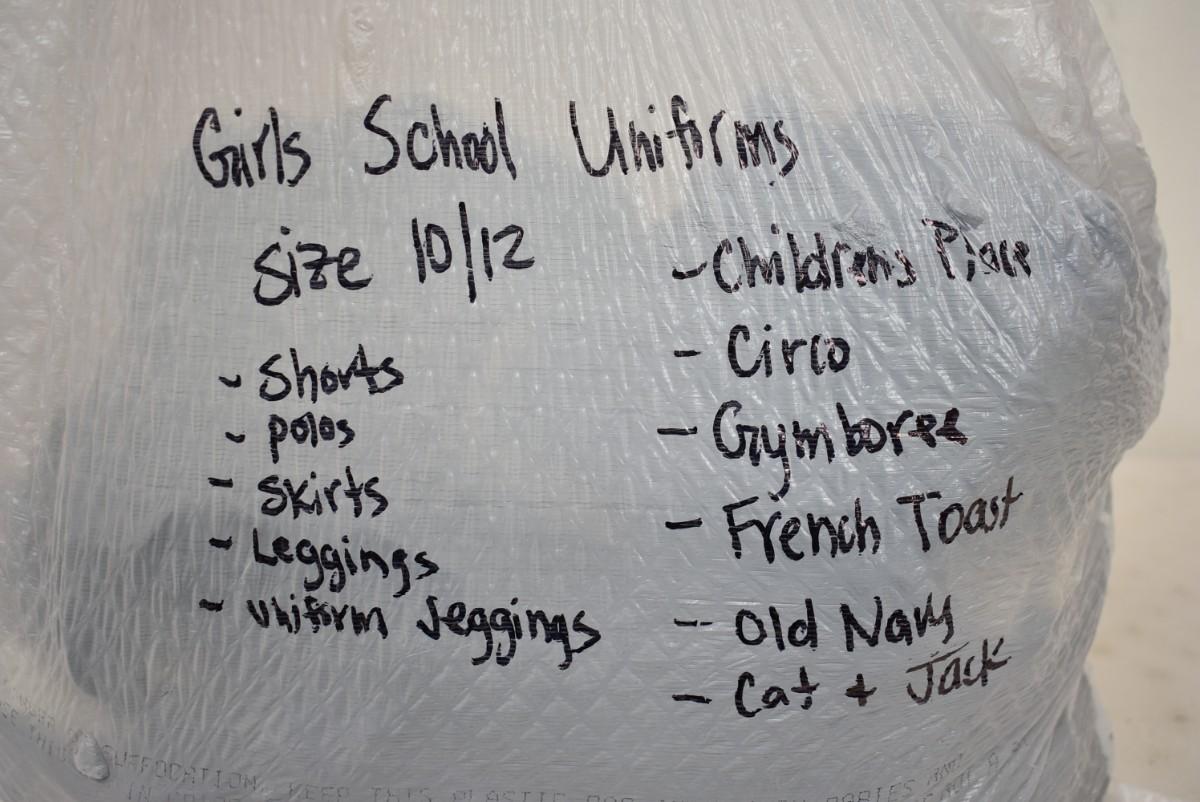 Girls School Uniforms
size 10/12
- Shorts
- polos
- skirts
- Leggings
- uniform Jeggings
- Childrens Place
- Circo
- Gymboree
- French Toast
- Old Navy
- Cat + Jack
SUFFOCATION KEEP THIS PLASTIC BAG
BABIES